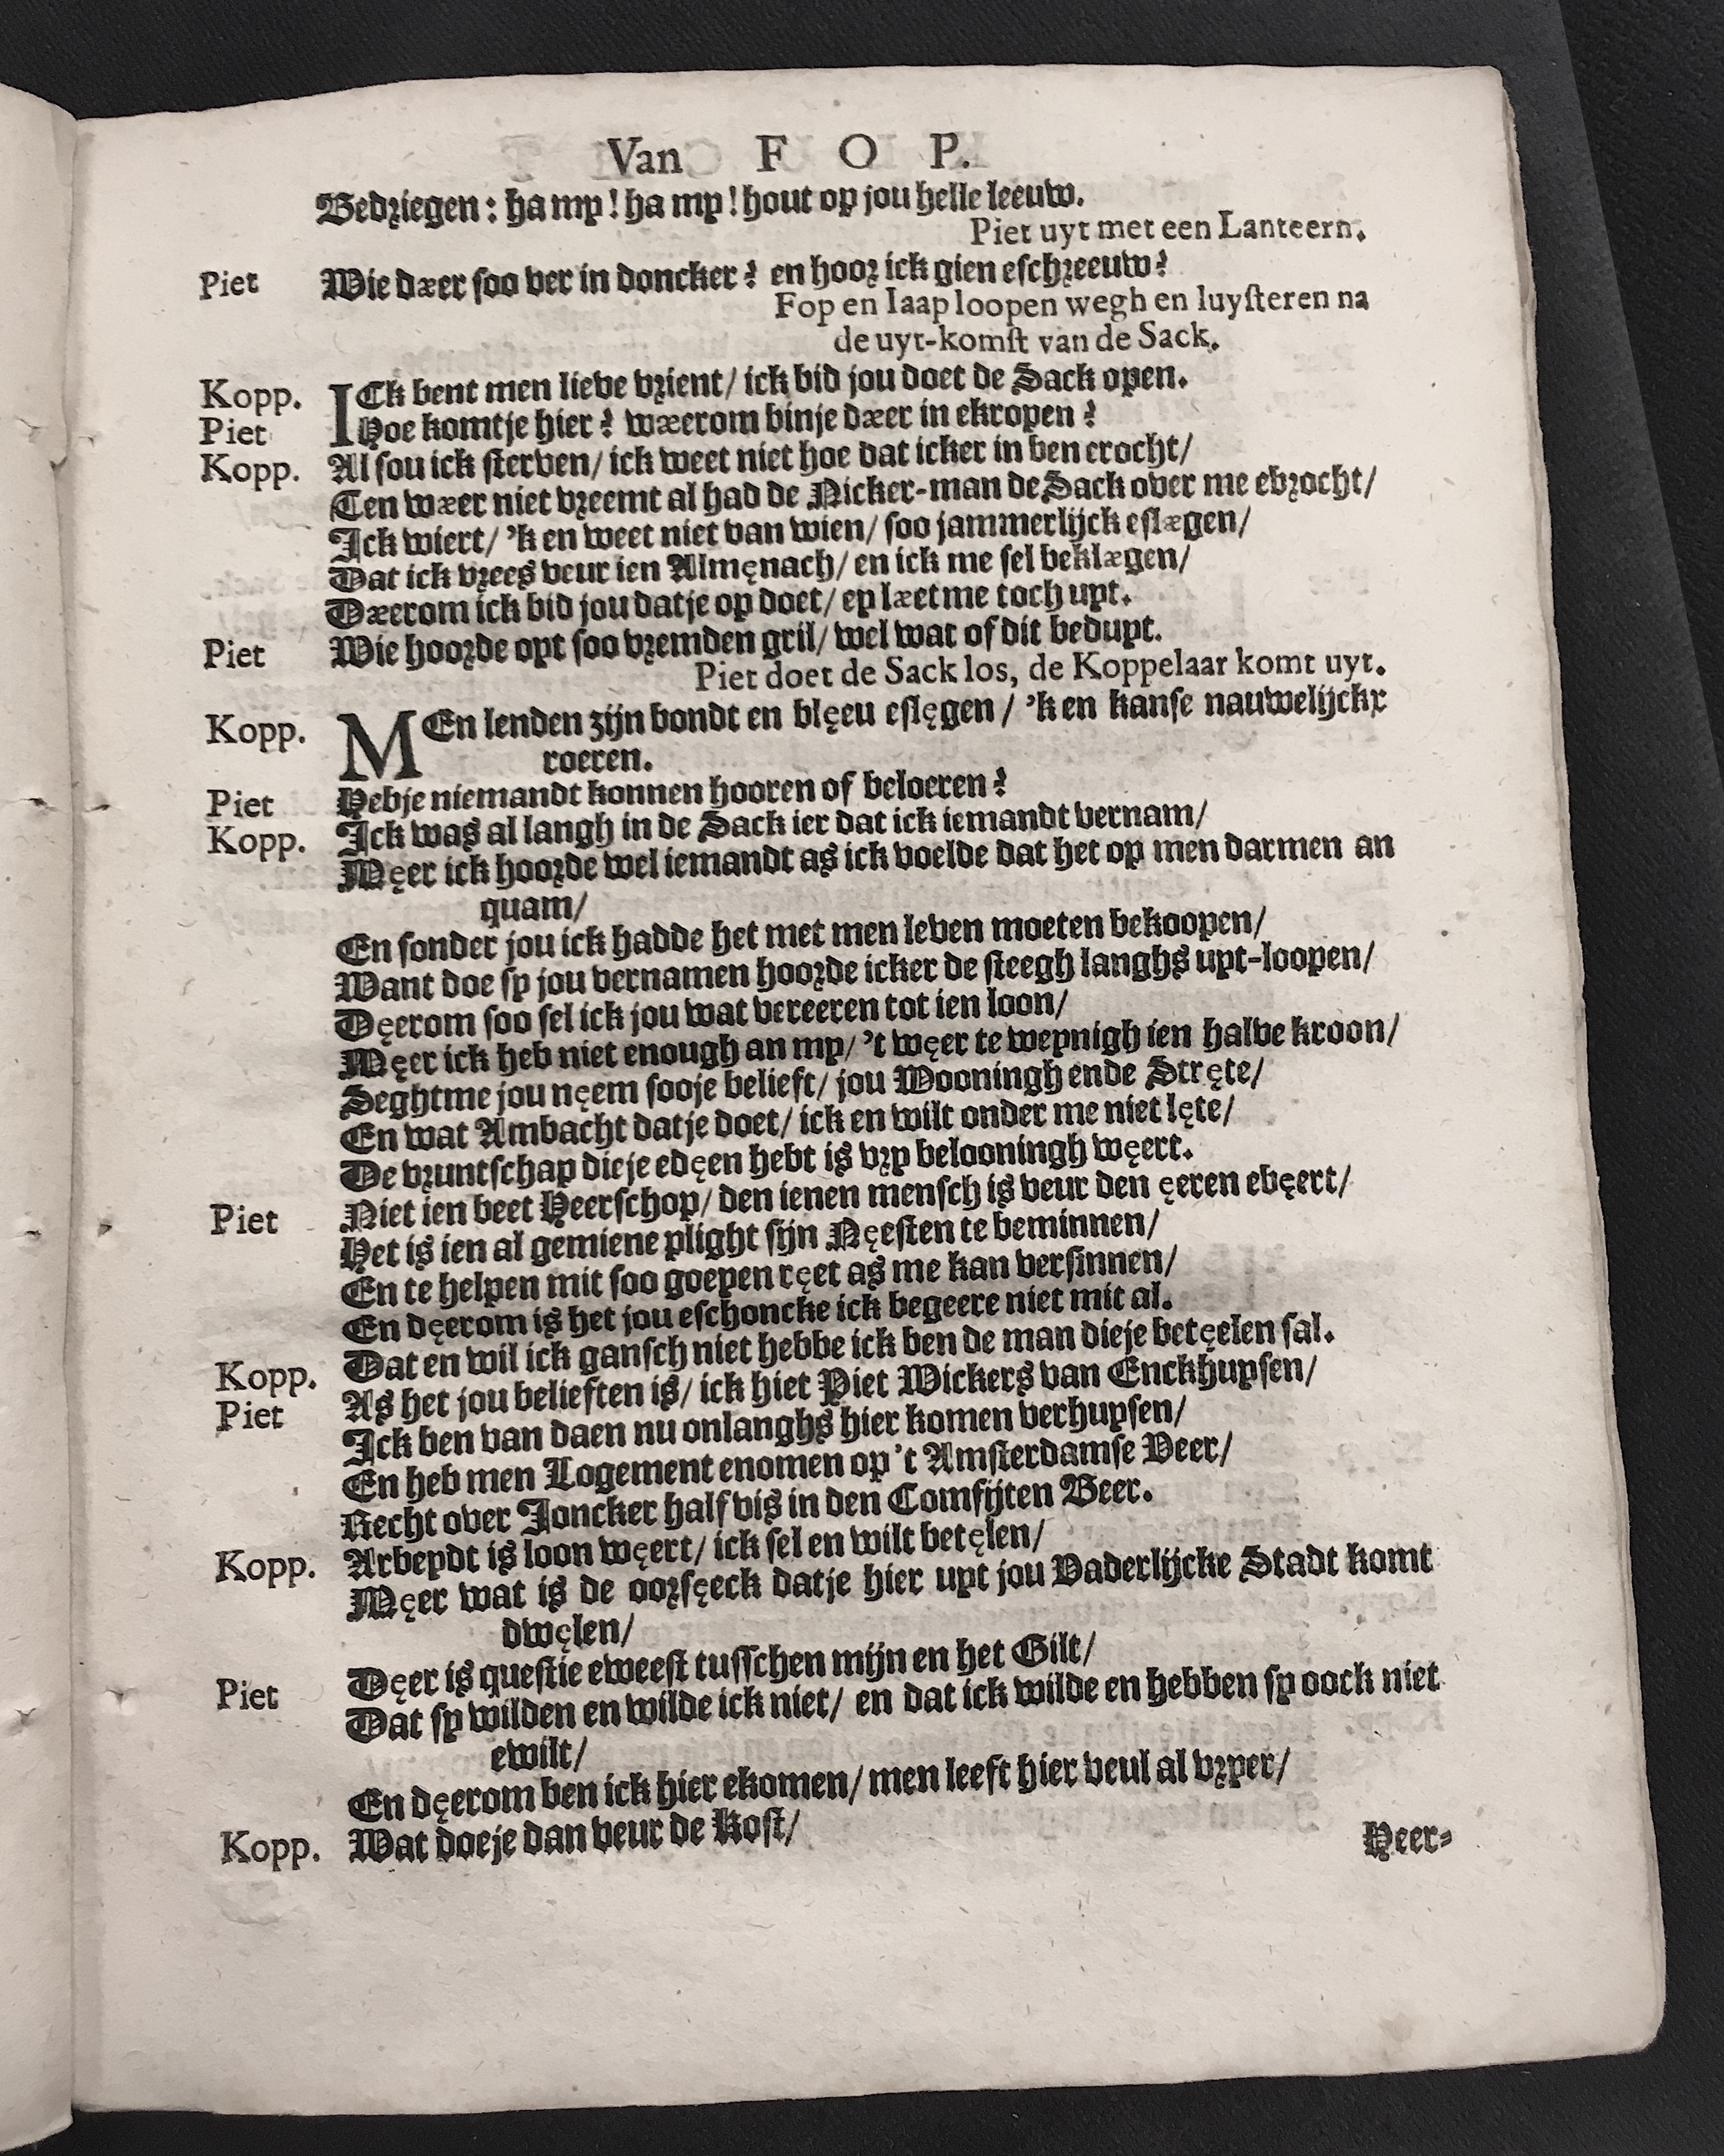 Van F O P.
Bedriegen: ha my! ha my! hout op jou helle leeuw.
Piet uyt met een Lanteern.
Piet Wie dæer soo ver in doncker? en hoor ick gien eschreeuw?
Fop en Iaap loopen wegh en luysteren na
de uyt-komst van de Sack.
Kopp. ICk bent men lieve vrient/ ick bid jou doet de Sack open.
Piet Hoe komtje hier? wæerom binje dæer in ekropen?
Kopp. Al sou ick sterven/ ick weet niet hoe dat icker in ben erocht/
Ten wæer niet vreemt al had de Nicker-man de Sack over me ebrocht/
Ick wiert/ 'k en weet niet van wien/ soo jammerlijck eslægen/
Dat ick vrees veur ien Almęnach/ en ick me sel beklægen/
Dæerom ick bid jou datje op doet/ ey læet me toch uyt.
Piet Wie hoorde oyt soo vremden gril/ wel wat of dit beduyt.
Piet doet de Sack los, de Koppelaar komt uyt.
Kopp. MEn lenden zijn bondt en blęeu eslęgen / 'k en kanse nauwelijckx
roeren.
Piet Hebje niemandt konnen hooren of beloeren?
Kopp. Ick was al langh in de Sack ier dat ick iemandt vernam/
Męer ick hoorde wel iemandt as ick voelde dat het op men darmen an
quam/
En sonder jou ick hadde het met men leven moeten bekoopen/
Want doe sy jou vernamen hoorde icker de steegh langhs uyt-loopen/
Dęerom soo sel ick jou wat vereeren tot ien loon/
Męer ick heb niet enough an my/ 't węer te weynigh ien halve kroon/
Seghtme jou nęem sooje belieft/ jou Wooningh ende Stręte/
En wat Ambacht datje doet/ ick en wilt onder me niet lęte/
De vruntschap dieje edęen hebt is vry belooningh węert.
Piet Niet ien beet Heerschop/ den ienen mensch is veur den ęeren ebęert/
Het is ien al gemiene plight sijn Nęesten te beminnen/
En te helpen mit soo goeyen ręet as me kan versinnen/
En dęerom is het jou eschoncke ick begeere niet mit al.
Kopp. Dat en wil ick gansch niet hebbe ick ben de man dieje betęelen sal.
Piet As het jou belieften is/ ick hiet Piet Wickers van Enckhuysen/
Ick ben van daen nu onlanghs hier komen verhuysen/
En heb men Logement enomen op 't Amsterdamse Veer/
Recht over Joncker half vis in den Comfijten Beer.
Kopp. Arbeydt is loon węert/ ick sel en wilt betęlen/
Męer wat is de oorsęeck datje hier uyt jou Vaderlijcke Stadt komt
dwęlen/
Piet Dęer is questie eweest tusschen mijn en het Gilt/
Dat sy wilden en wilde ick niet/ en dat ick wilde en hebben sy oock niet
ewilt/
En dęerom ben ick hier ekomen/ men leeft hier veul al vryer/
Kopp. Wat doeje dan veur de Kost/
Heer-